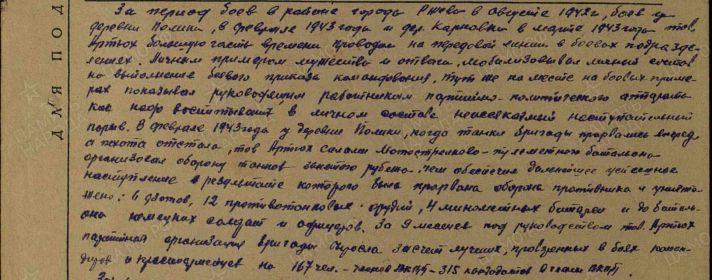 За период боев в районе города Ржева в августе 1942 г, боев у
деревни Поляки, в феврале 1943 года и дер. Карповки в марте 1943 года тов.
Артюх большую часть времени проводил на передовой линии в боевых подразде-
лениях. Личным примером мужества и отваги, мобилизовывал личный состав
на выполнение боевого приказа командования, тут же на месте на боевых приме-
рах показывал руководящим работникам партийно-политического аппарата
как надо воспитывать в личном составе неиссякаемый наступательный
порыв. В феврале 1943 года у деревни Поляки, когда танки бригады прорвались вперед
а пехота отстала, тов Артюх силами мотострелково-пулеметного батальона
организовал оборону танков занятого рубежа. Чем обеспечил дальнейшее успешное
наступление в результате которого была прорвана оборона противника и уничто-
жено: 6 дзотов, 12 противотанковых орудий, 4 минометных батареи и до баталь-
она немецких солдат и офицеров. За 9 месяцев под руководством тов. Артюх
партийная организация бригады выросла за счет лучших, проверенных в боях коман-
диров и красноармейцев на 167 чел. - членов ВКП/б - 315 кандидатов в члены ВКП/б
ДЛЯ ПОД